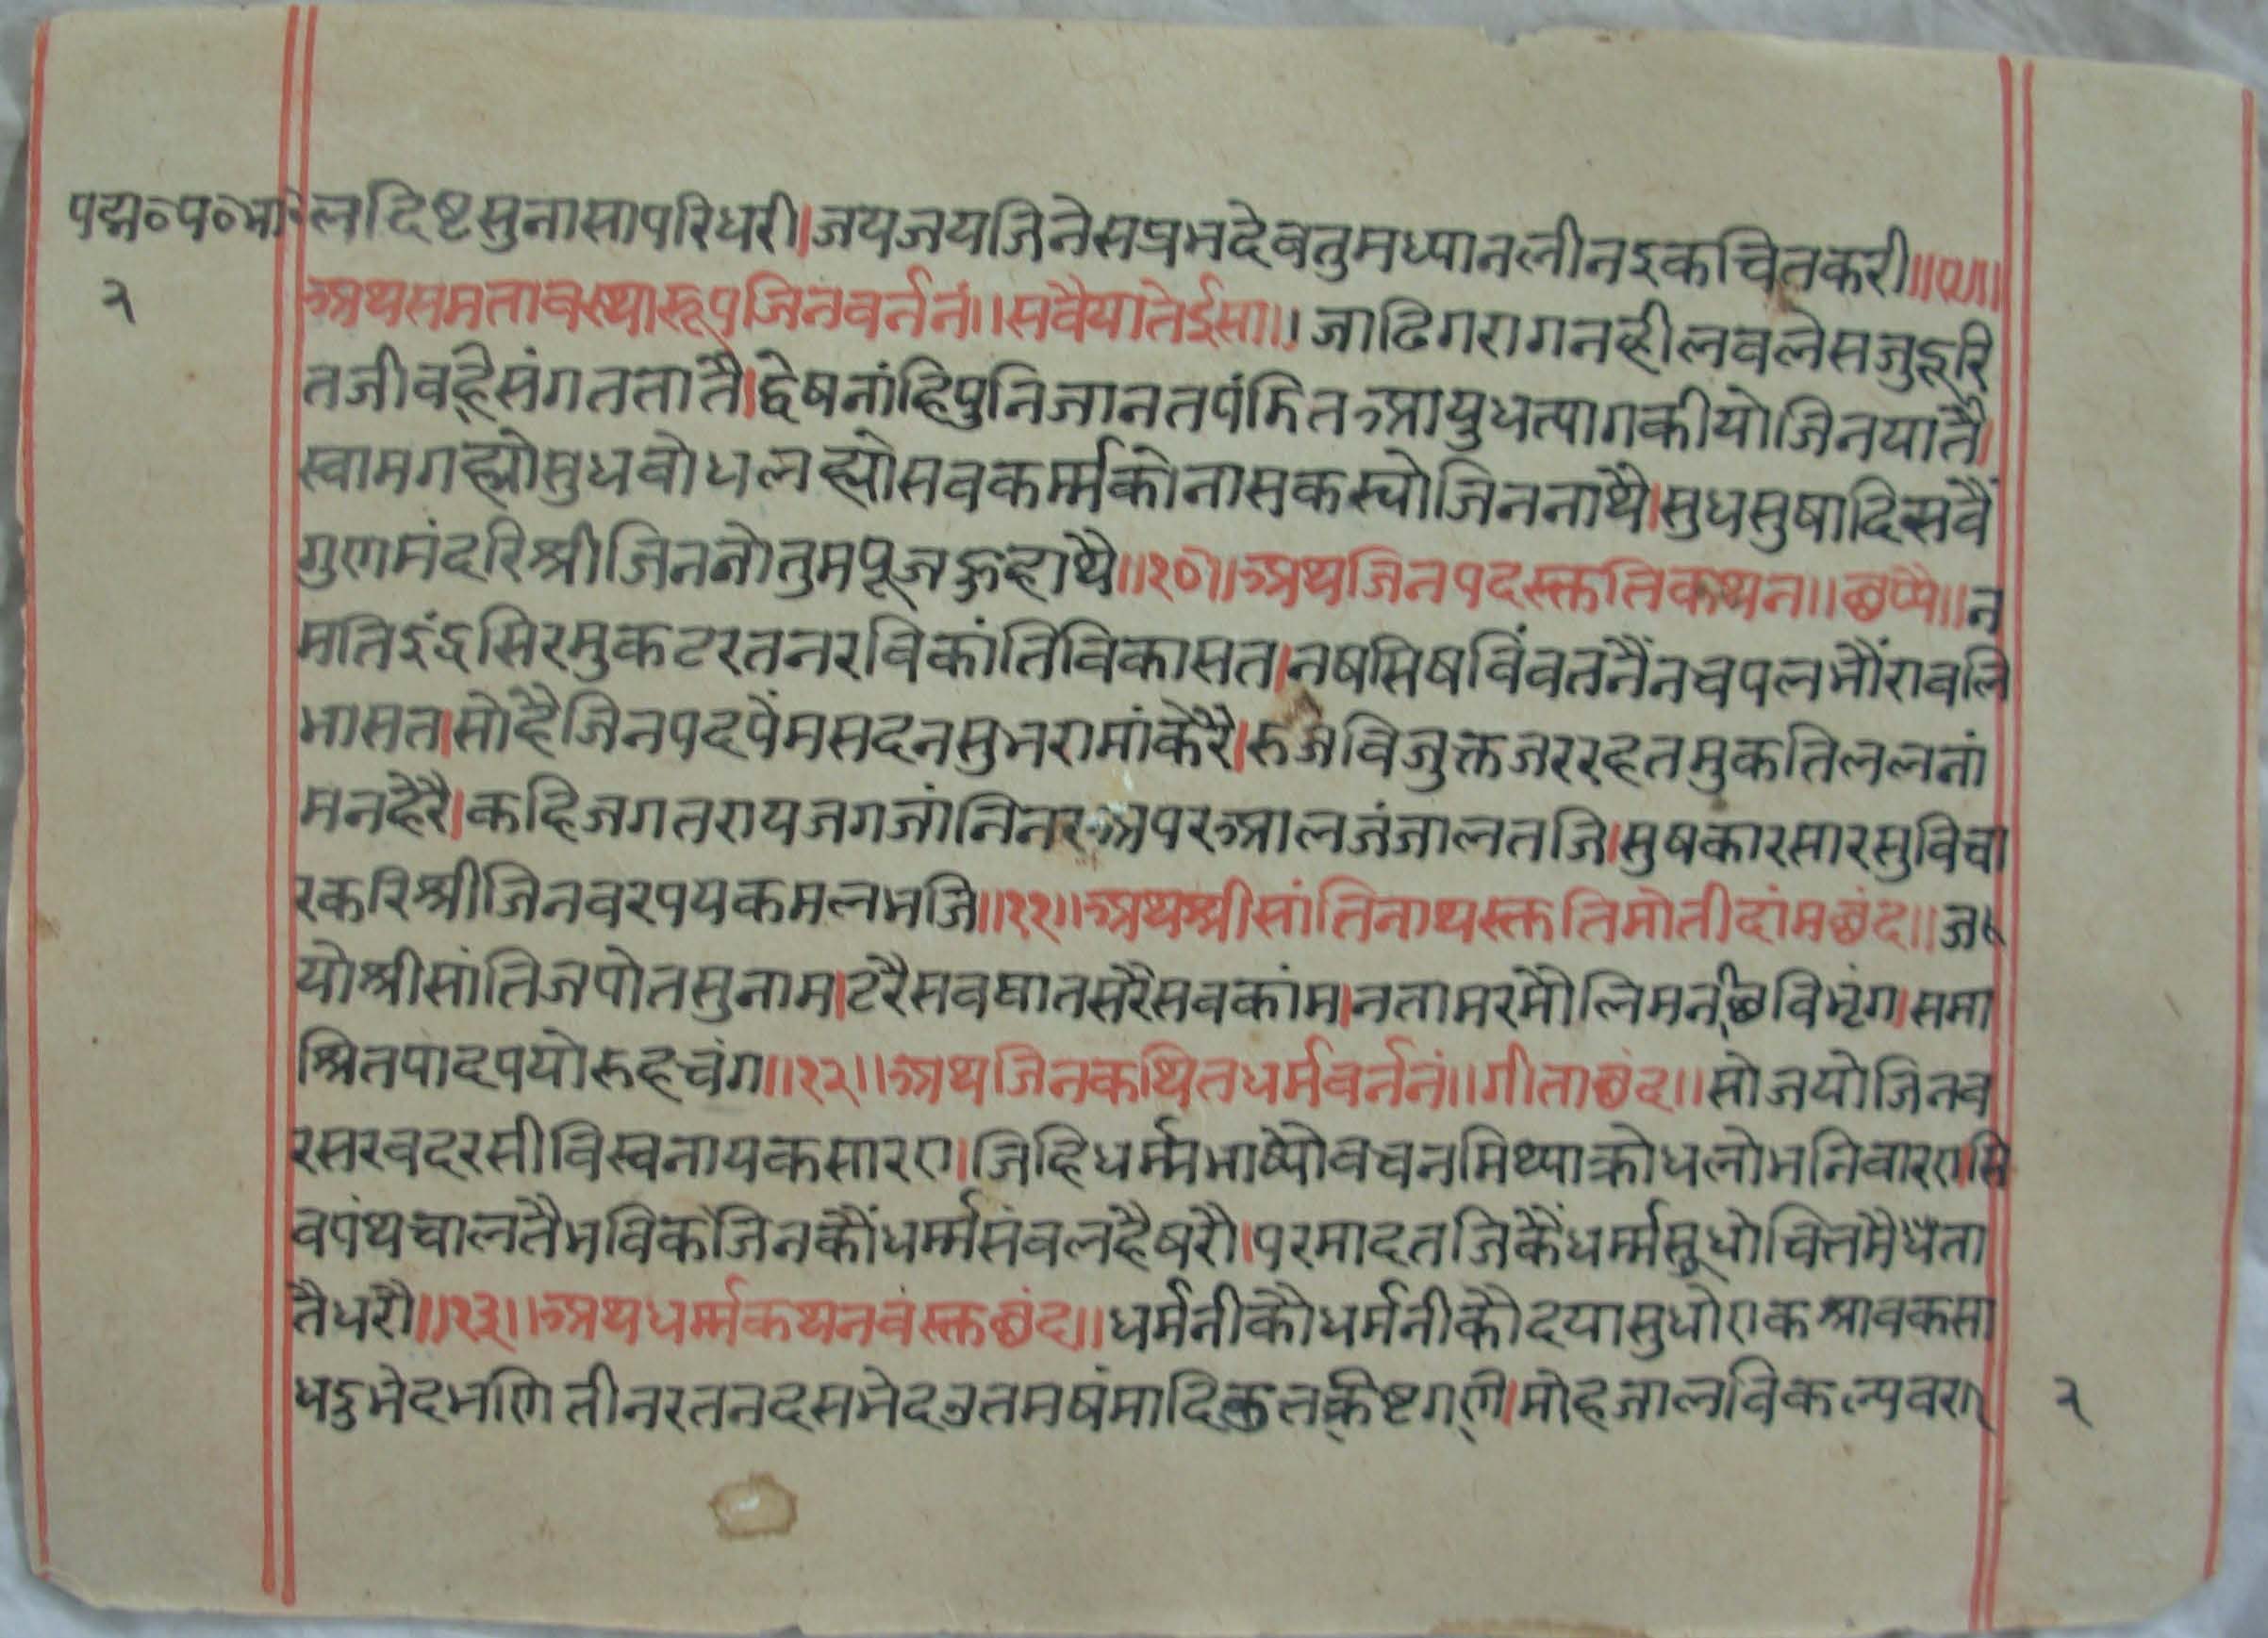 पद्म०प०भा०
२
ल दिष्ट सुनासा परिधरी। जय जय जिनेस प्रभ देव तुम ध्यान लीन इक चित करी॥९॥
अथ समतावस्था रूप जिन वर्ननं॥ सवैया तेईसा॥ जा ढिग राग नही लवलेस जु दूरि
त जीव है संगत तातै। द्वेष नांहि पुनि जानत पंडित आयुध त्याग कीयो जिन यातै।
स्वाम गह्यो सुध बोध लह्यो सव कर्म्म को नास कस्यो जिन नाथै। सुध सुषादि सवै
गुण मंदरि श्री जिन नो तुम पूजऊ हाथै॥१०॥ अथ जिन पद स्तुति कथन॥ छप्पै॥ न
मति इंद्र सिर मुकट रतन रवि कांति विकासत। नष सिष विंवत नैंन चपल भौंरावलि
भासत। सोहै जिन पद पेंम सदन सुभ रामां केरै। रुज विजुक्त जर रहत मुकति ललनां
मन हेरै। कहि जगतराय जग जांनि नर अपर आल जंजाल तजि। सुषकार सार सुविचा
र करि श्री जिनवर पय कमल भजि॥११॥ अथ श्री सांतिनाथ स्तुति मोतीदांम छंद॥ ज
यो श्री सांति जपोत सुनाम। टरै सव घात सरै सव कांम। नतामर मौलि मन छवि भृंग। समा
श्रित पाद पयोरुह चंग॥१२॥ अथ जिन कथित धर्म वर्ननं॥ गीता छंद॥ सो जयो जिनव
र सरवदरसी विस्वनायक सारण। जिहि धर्म्म भाष्यो वचन मिथ्या क्रोध लोभ निवारण। सि
व पंथ चालतै भविक जिन कौं धर्म्म संवल है षरौ। परमाद तजि कैं धर्म्म सूधो चित्त मै धैं ता
तै धरौ॥१३॥ अथ धर्म्म कथनवं स्क्त छंद॥ धर्म नीकौ धर्म नीकौ दया सुधो एक श्रावक सा
धदु भेद भणि तीन रतन दस भेद व्रतम षंमादि कृत कीष्ट गणे। मोह जाल विकल्प वरा
२